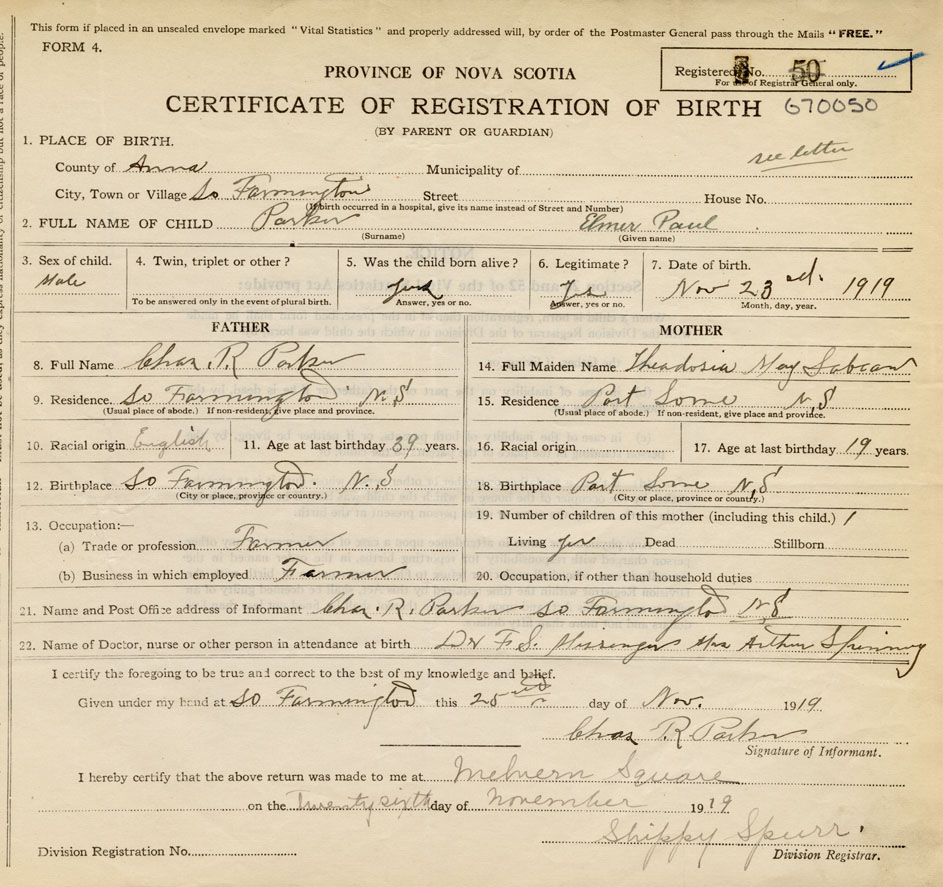 This form if placed in an unsealed envelope marked "Vital Statistics" and properly addressed will, by order of the Postmaster General pass through the Mails "FREE."
FORM 4.
Registered No. 50
For use of Registrar General only.
PROVINCE OF NOVA SCOTIA
CERTIFICATE OF REGISTRATION OF BIRTH 670050
(BY PARENT OR GUARDIAN)
1. PLACE OF BIRTH.
see letter
County of Anna Municipality of
City, Town or Village So Farmington Street House No.
(If birth occurred in a hospital, give its name instead of Street and Number)
2. FULL NAME OF CHILD Parker Elmer Paul
(Surname) (Given name)
3. Sex of child. 4. Twin, triplet or other? 5. Was the child born alive? 6. Legitimate? 7. Date of birth.
Male Yes Nov 23 1919
To be answered only in the event of plural birth. Answer, yes or no. Answer, yes or no. Month, day, year.
FATHER
8. Full Name Chas. R. Parker
9. Residence So Farmington N.S
(Usual place of abode.) If non-resident, give place and province.
10. Racial origin English 11. Age at last birthday 39 years.
12. Birthplace So Farmington. N.S
(City or place, province or country.)
13. Occupation:—
(a) Trade or profession Farmer
(b) Business in which employed Farmer
MOTHER
14. Full Maiden Name Theadosia May
15. Residence Port Lorne N,S
(Usual place of abode.) If non-resident, give place and province.
16. Racial origin 17. Age at last birthday 19 years.
18. Birthplace Port Lorne N,S
(City or place, province or country.)
19. Number of children of this mother (including this child.) 1
Living yes Dead Stillborn
20. Occupation, if other than household duties
21. Name and Post Office address of Informant Chas. R. Parker So Farmington N.S
22. Name of Doctor, nurse or other person in attendance at birth Dr F.S. Messenger Mrs Arthur Spinney
I certify the foregoing to be true and correct to the best of my knowledge and belief.
Given under my hand at So Farmington this 25 day of Nov. 1919
Chas R Parker
Signature of Informant.
I hereby certify that the above return was made to me at Melvern Square
on the Twenty sixth day of November 1919
Shippy Spurr.
Division Registration No. Division Registrar.